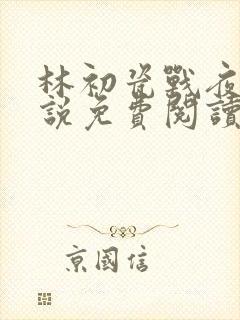 林初瓷戰夜
說免費閱讀
京國信